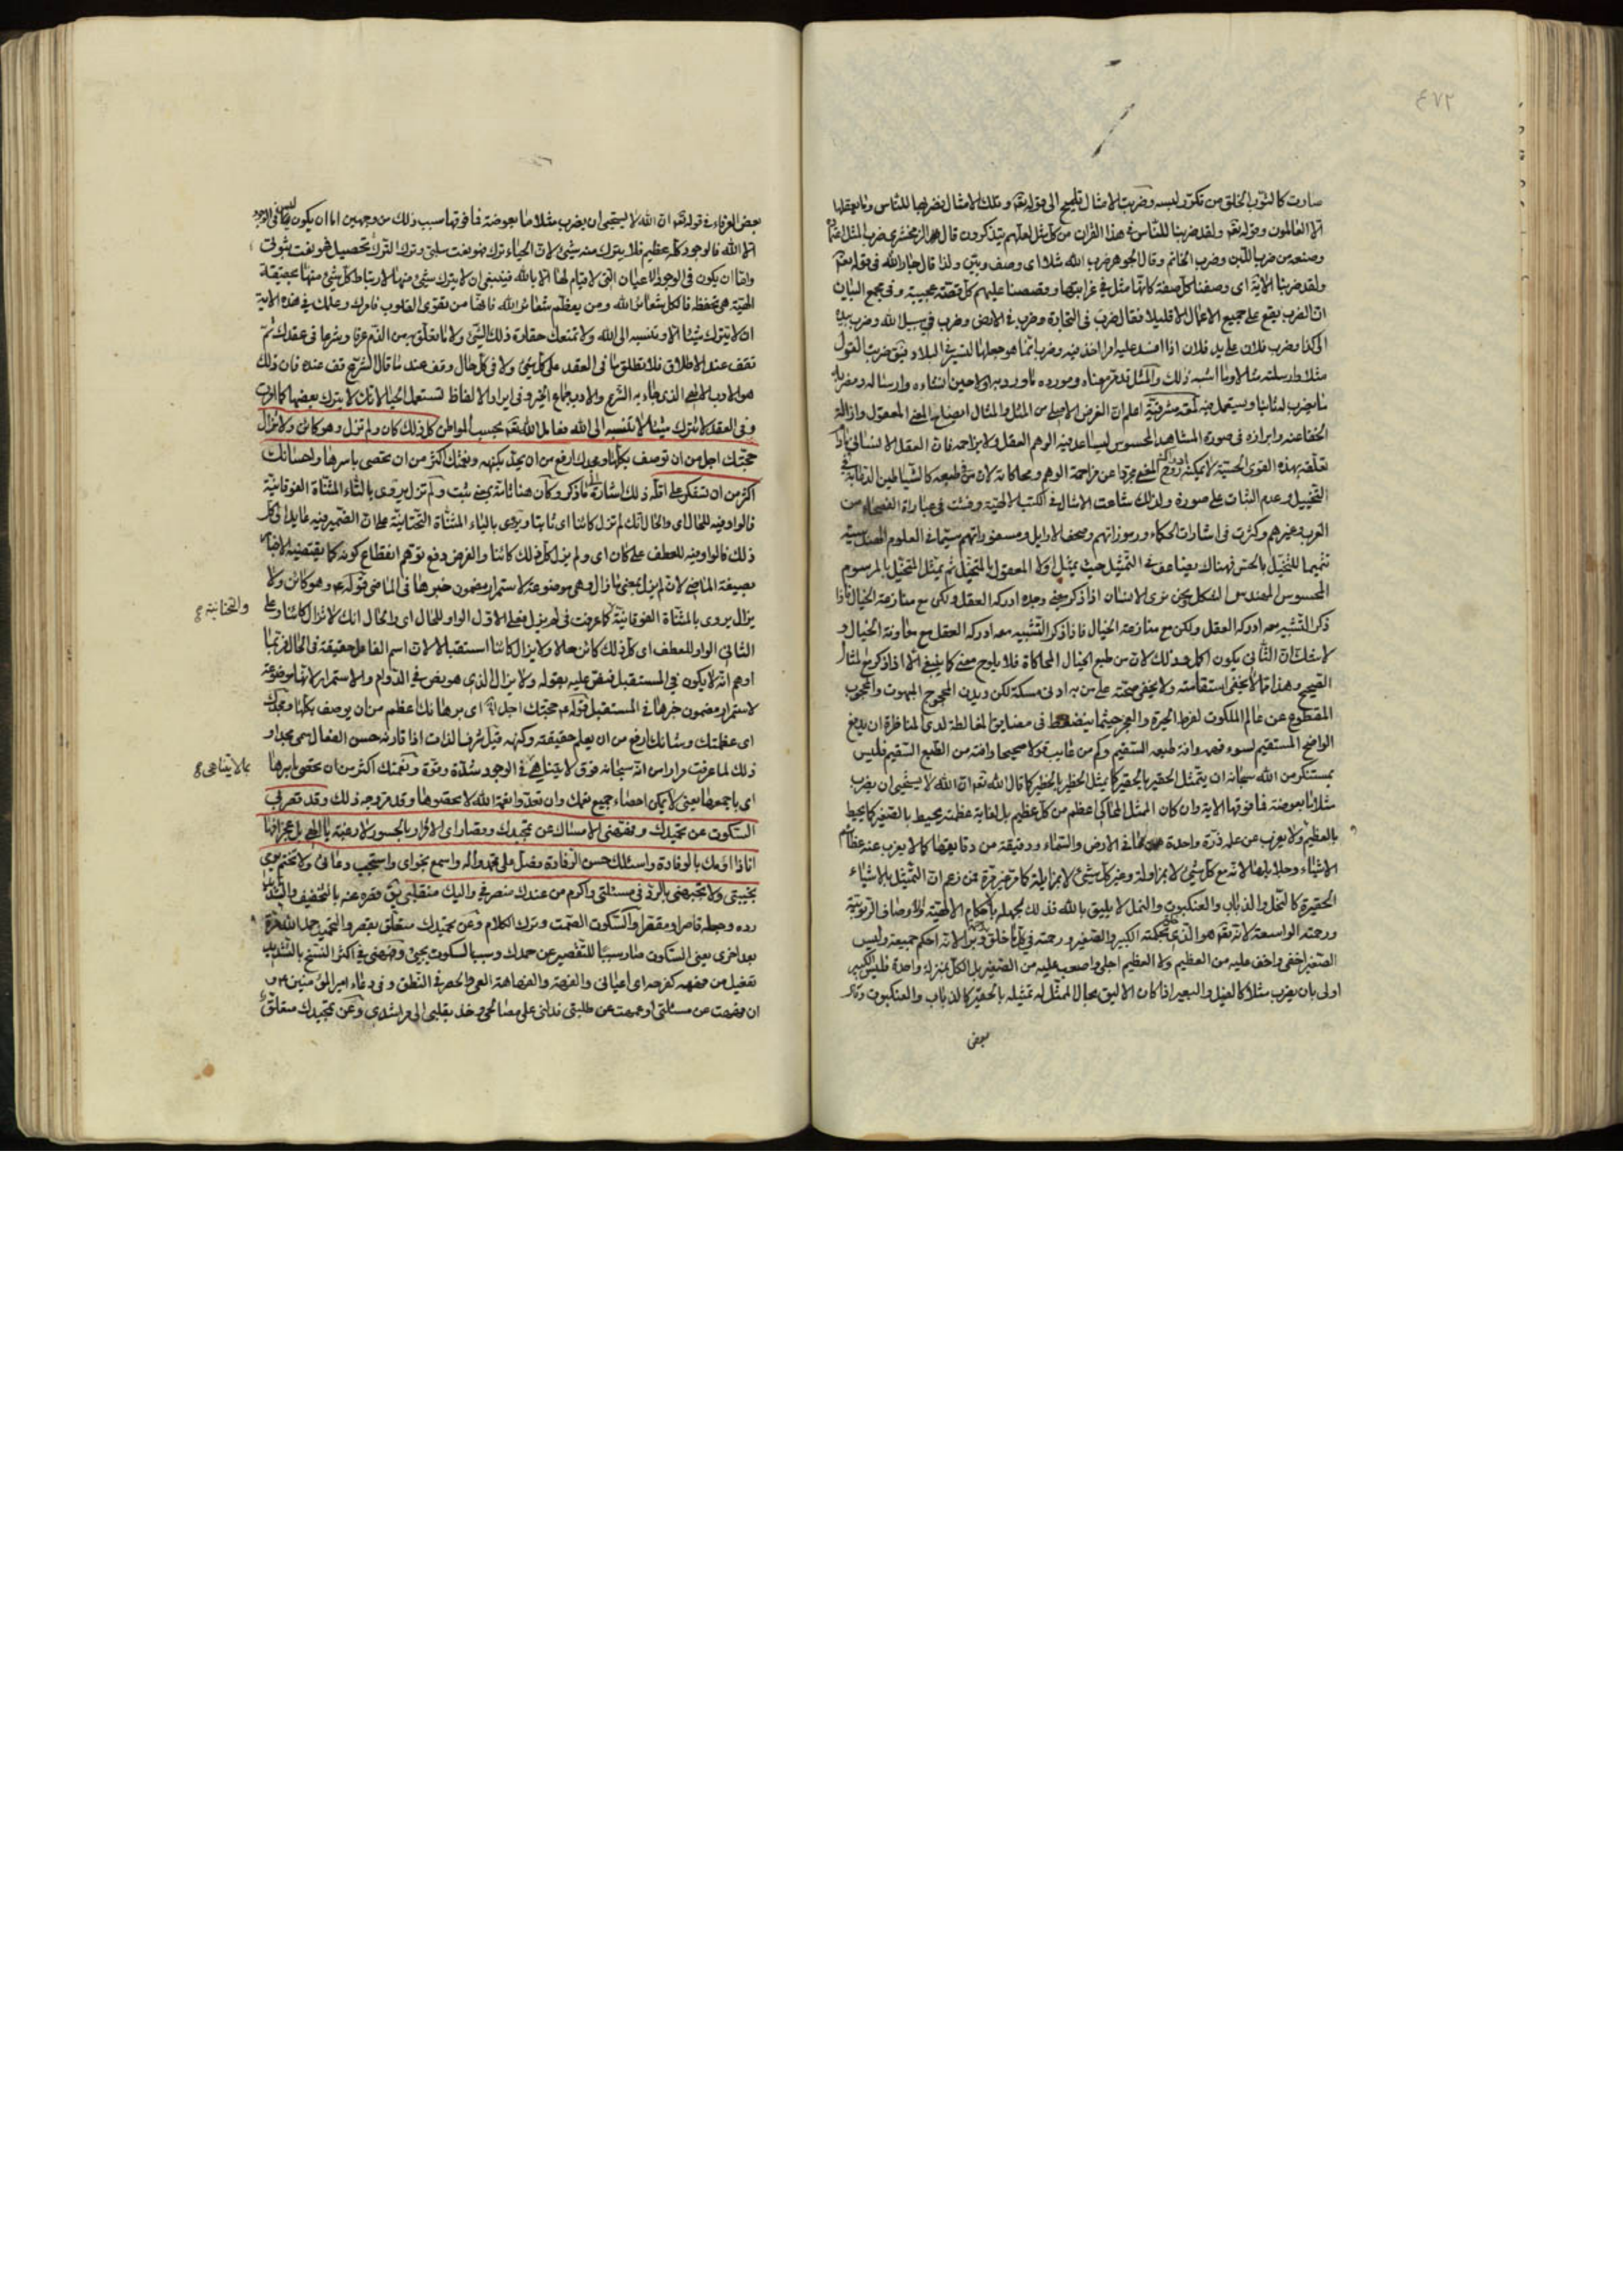 ٤٧٢
صارت كالثوب الخلق من تكرر لبسه وضربت الامثال تلميح الى قوله تعه وتلك الامثال نضربها للناس وما يعقلها
الا العالمون وقوله تعه ولقد ضربنا للناس في هذا القران من كل مثل لعلهم يتذكرون قال الزمخشري ضرب المثل
وصنعه من ضرب اللبن وضرب الخاتم وقال الجوهر ضرب الله مثلا اى وصف وبين ولذا قال جار الله في قوله تعه
ولقد ضربنا الاية اى وصفنا كل صفة كانها مثل في غرابتها وقصصنا عليهم كل قصة عجيبة وفي مجمع البيان
ان الضرب يقع على جميع الاعمال الا قليلا فقال ضرب فى التجارة وضرب في الارض وضرب في سبيل الله وضرب بيده
الى كذا وضرب فلان على يد فلان اذا افسد عليه امرا اخذ فيه وضرب انما هو جعلها لتسير في البلاد يق ضربت القول
مثلا وارسلته مثلا وما اشبه ذلك والمثل قد مر معناه ومورده ما ورد به اولا حين انشاءه وارساله ومضربه
ما يضرب له ثانيا ويستعمل فيه لمعة مشرقية اعلم ان الغرض الاصلي من المثل والمثال ايضاح المعنى المعقول وازالة
الخفا عنه وابرازه في صورة المشاهد المحسوس ليساعد فيه الوهم العقل ولا يزاحمه فان العقل الانساني مادام
تعلقه بهذه القوى الحسية لا يمكنه ادراك روح المعنى مجردا عن مزاحمة الوهم ومحاكاته لان من طبعه كالشياطين
التخييل وعدم الثبات على صورة ولذلك شاعت الامثال في الكتب الالهية وفشت في عبارات الفصحاء من
العرب وغيرهم وكثرت في اشارات الحكماء ورموزاتهم وصحف الاوايل ومسفوراتهم سيما في العلوم الهندسية
تتميما للتخيل بالحس فهناك يضاعف في التمثيل حيث يمثل اولا المعقول بالمتخيل ثم يمثل المتخيل بالمرسوم
المحسوس المهندس المشكل نحن نرى الانسان اذا ذكر معنى وحده ادركه العقل ولكن مع منازعة الخيال فاذا
ذكر التشبيه معه ادركه العقل ولكن مع منازعة الخيال فاذا ذكر التشبيه معه ادركه العقل مع معاونة الخيال و
لا شك ان الثاني يكون اكمل وذلك لان من طبع الخيال المحاكاة فلا يلوح معنى كما ينبغي الا اذا ذكر مع المثال
الصحيح وهذا مما لا يخفى استقامته ولا يخفى صحته على من به ادنى مسكة لكن ديدن المحجوج المبهوت والمحجوب
المقطوع عن عالم الملكوت لفرط الحيرة والعجز حيثما ينضغط في مضايق المغالطة لدى المناظرة ان يدفع
الواضح المستقيم لسوء فهمه وافة طبعه السقيم وكم من عايب قولا صحيحا وافته من الطبع السقيم فليس
بمستنكر من الله سبحانه ان يتمثل الحقير بالحقير كما يمثل الخطير بالخطير كما قال الله تعه ان الله لا يستحيي ان يضرب
مثلا ما بعوضة فما فوقها الاية وان كان الممثل المحاكي اعظم من كل عظيم بل لغاية عظمته يحيط بالصغير كما يحيط
بالعظيم ولا يعزب عن علمه ذرة واحدة مما في الارض والسماء ودقيقة من دقايقها كما لا يعزب عنه عظائم
الاشياء وجلايلها لانه مع كل شيء لا بمزاولة وغير كل شيء لا بمزايلة كما مر غير مرة فمن زعم ان التمثيل بالاشياء
الحقيرة كالنحل والذباب والعنكبوت والنمل لا يليق بالله فذلك لجهله باحكام الالهية والاوصاف الربوبية
ورحمته الواسعة لانه تعه هو الذي حكمته الكبير والصغير ورحمته في كل ما خلق وبرا لانه احكم جميعه وليس
الصغير اخفى واخف عليه من العظيم ولا العظيم اجلى واصعب عليه من الصغير بل الكل بمنزلة واحدة فليس الكبير
اولى بان يضرب مثلا كالفيل والبعير اذا كان الاليق بحال الممثل له تمثيله بالحقير كالذباب والعنكبوت وقال
بعض
بعض العرفاء في قوله تعه ان الله لا يستحيي ان يضرب مثلا ما بعوضة فما فوقها سبب ذلك من وجهين اما ان يكون ليس في الوجود
الا الله فالوجود كله عظيم فلا يترك منه شيء لان الحياء ترك فهو نعت سلبي وترك الترك تحصيل فهو نعت ثبوتي
واما ان يكون في الوجود الاعيان التي لا قيام لها الا بالله فينبغي ان لا يترك شيء منها لارتباط كل شيء منها بحقيقة
الهية هي تحفظه فالكل شعائر الله ومن يعظم شعائر الله فانها من تقوى القلوب فامرك وعلمك في هذه الاية
ان لا تترك شيئا الا وتنسبه الى الله ولا تمنعك حقارة ذلك الشيء ولا ما تعلق به من الذم عرفا وشرعا في عقدك ثم
تقف عند الاطلاق فلا تطلق ما في العقد على كل شيء ولا في كل حال وقف عند ما قال الشرع قف عنده فان ذلك
هو الادب الالهي الذي جاء به الشرع والادب جماع الخير وفي ايراد الالفاظ تستعمل الحيا لانك لا تترك بعضها كما امرت
وفي العقد لا تترك شيئا لا تنسبه الى الله فعامل الله تعه بحسب المواطن كل ذلك كان ولم تزل وهو كائن ولا تزال
حجتك اجل من ان توصف بكلها ومجدك ارفع من ان يحد بكنهه ونعمتك اكثر من ان تحصى باسرها واحسانك
اكثر من ان تشكر على اقله ذلك اشارة الى ما ذكر وكان هنا تامة بمعنى ثبت ولم تزل يروى بالتاء المثناة الفوقانية
فالواو فيه للحال اى والحال انك لم تزل كائنا اى ثابتا ويروى بالياء المثناة التحتانية على ان الضمير فيه عايد الى كل
ذلك فالواو فيه للعطف على كان اى ولم يزل كل ذلك كائنا والغرض دفع توهم انقطاع كونه كما يقتضيه الاخبار
بصيغة الماضي لان لم يزل بمعنى ما زال وهي موضوعة لاستمرار مضمون خبرها في الماضي قوله عه وهو كائن ولا
يزال يروى بالمثناة الفوقانية كما عرفت في لم يزل فعلى الاول الواو للحال اى والحال انك لا تزال كائنا وعلى
والتحتانية
الثاني الواو للعطف اى كل ذلك كائن حالا ولا يزال كائنا استقبالا لان اسم الفاعل حقيقة في الحال فربما
اوهم انه لا يكون في المستقبل فنص عليه بقوله ولا يزال الذي هو نص في الدوام والاستمرار لانها موضوعة
لاستمرار مضمون خبرها في المستقبل قوله عه حجتك اجل اه اى برهانك اعظم من ان يوصف بكلها ومجدك
اى عظمتك وشانك ارفع من ان يعلم حقيقته وكنهه قيل شرف الذات اذا قارنه حسن الفعال سمى مجدا و
ذلك لما عرفت مرارا من انه سبحانه فوق لا يتناهى في الوجود شدة وقوة ونعمتك اكثر من ان تحصى باسرها
بما لا يتناهى
اى باجمعها يعنى لا يمكن احصاء جميع نعمك وان تعدوا نعمة الله لا تحصوها وقد مر وجه ذلك وقد قصر بي
السكوت عن تحميدك وفههني الامساك عن تمجيدك وقصاراي الاقرار بالحسور لا رغبة يا الهي بل عجزا فها
انا ذا اؤمك بالوفادة واسئلك حسن الرفادة فصل على محمد واله واسمع نجواي واستجب دعائي ولا تختم يومي
بخيبتي ولا تجبهني بالرد في مسئلتي واكرم من عندك منصرفي واليك منقلبي يق قصره عنه بالتخفيف والتشديد
رده وجعله قاصرا ومقصرا والسكوت الصمت وترك الكلام وعن تحميدك متعلق بقصر والتحميد حمد الله مرة
بعد اخرى يعنى السكوت صار سببا للتقصير عن حمدك وسبب السكوت يجيئ وفههني في اكثر النسخ بالتشديد
تفعيل من فههه كفرحه اى اعياني والفهة والفهاهة العي والحصر في النطق وفي دعاء امير المؤمنين عه و
ان فههت عن مسئلتي او عمهت عن طلبتي فدلني على مصالحي وخذ بقلبي الى مراشدي وعن تمجيدك متعلق